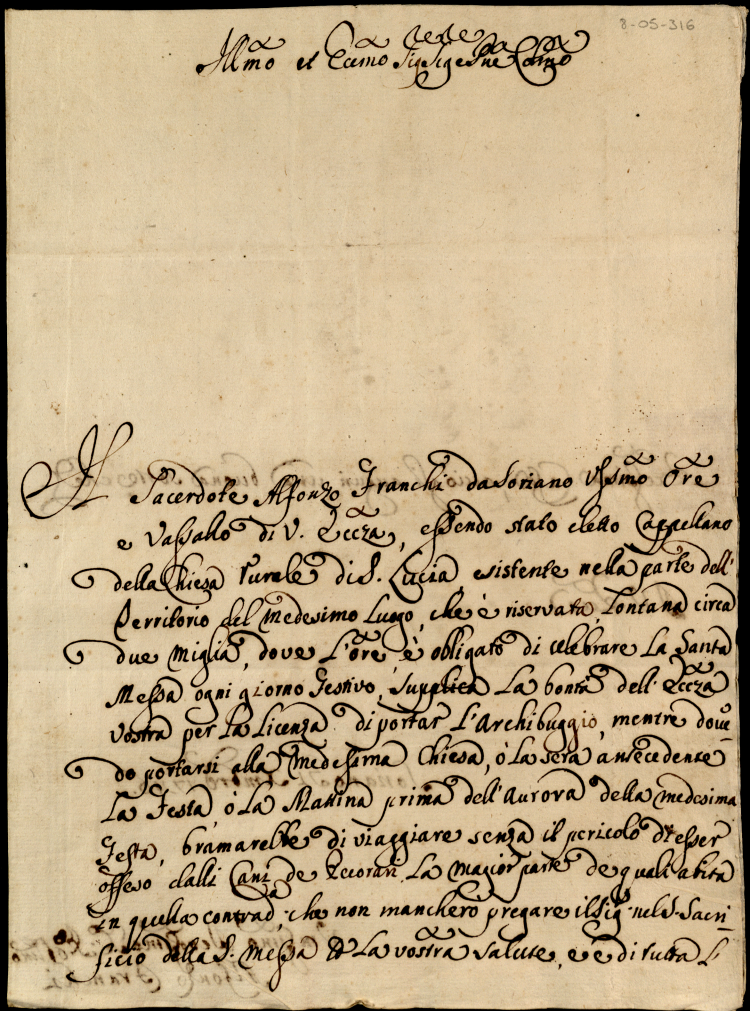 8-05-316
Illmo et Eccmo Sig. Sig. e Pne Colmo
Il Sacerdote Alfonzo Franchi da Soriano Vmo Ore
e Vassallo di V. Eccza, essendo stato eletto Cappellano
della Chiesa rurale di S. Lucia esistente nella parte dell'
Territorio del medesimo Luogo, che è riservata, lontana circa
due miglia, dove L'Ore è obligato di celebrare La Santa
Messa ogni giorno festivo, supplica La bontà dell' Eccza
vostra per La Licenza di portar L'Archibuggio, mentre dove-
do portarsi alla medessima Chiesa, ò La sera antecedente
La Festa, ò La Mattina prima dell'Aurora della medesima
Festa, bramarebbe di viaggiare senza il pericolo d'esser
offeso dalli Cani de Pecorari La magior parte de quali abita
in quella contrada, che non mancherò pregare il Sig. nel S. Sacri-
ficio della S. Messa La vostra salute, e è di tutta L'